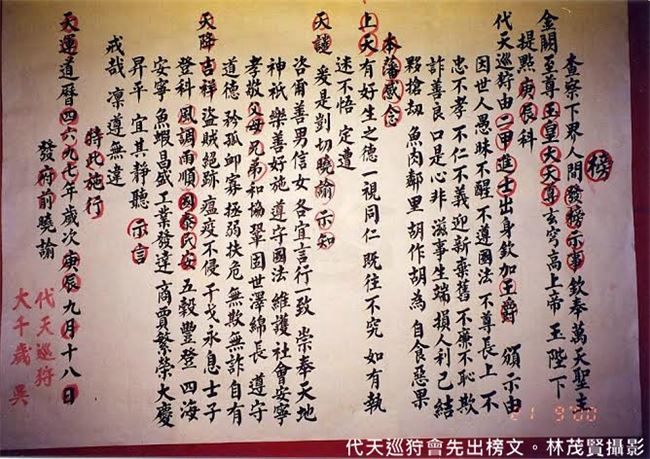 榜
查察下界人間發榜示事 欽奉萬天聖主
金闕至尊玉皇大天尊玄穹高上帝 玉陛下
提點庚辰科
代天巡狩由二甲進士出身欽加王爵 頒示由
因世人愚昧不醒 不遵國法 不尊長上 不
忠不孝 不仁不義 迎新棄舊 不廉不恥 欺
詐善良 口是心非 滋事生端 損人利己 結
夥搶劫 魚肉鄉里 胡作胡為 自食惡果
本藩感念
上天有好生之德 一視同仁 既往不究 如有執
迷不悟 定遭
天譴 爰是剴切曉諭 示知
咨爾善男信女 各宜言行一致 崇奉天地
神祇 樂善好施 遵守國法 維護社會安寧
孝敬父母 兄弟和協 鞏固世澤綿長 遵守
道德 矜孤卹寡 拯弱扶危 無欺無詐 自有
天降吉祥 盜賊絕跡 瘟疫不侵 干戈永息 士子
登科 風調雨順 國泰民安 五穀豐登 四海
安寧 魚蝦昌盛 工業發達 商賈繁榮 大慶
昇平 宜其靜聽 示言
戒哉 凜遵無違
特此施行
天運道曆四六九七年歲次庚辰九月十八日
發府前曉諭
代天巡狩
大千歲 吳
21 9'00
代天巡狩會先出榜文。林茂賢攝影